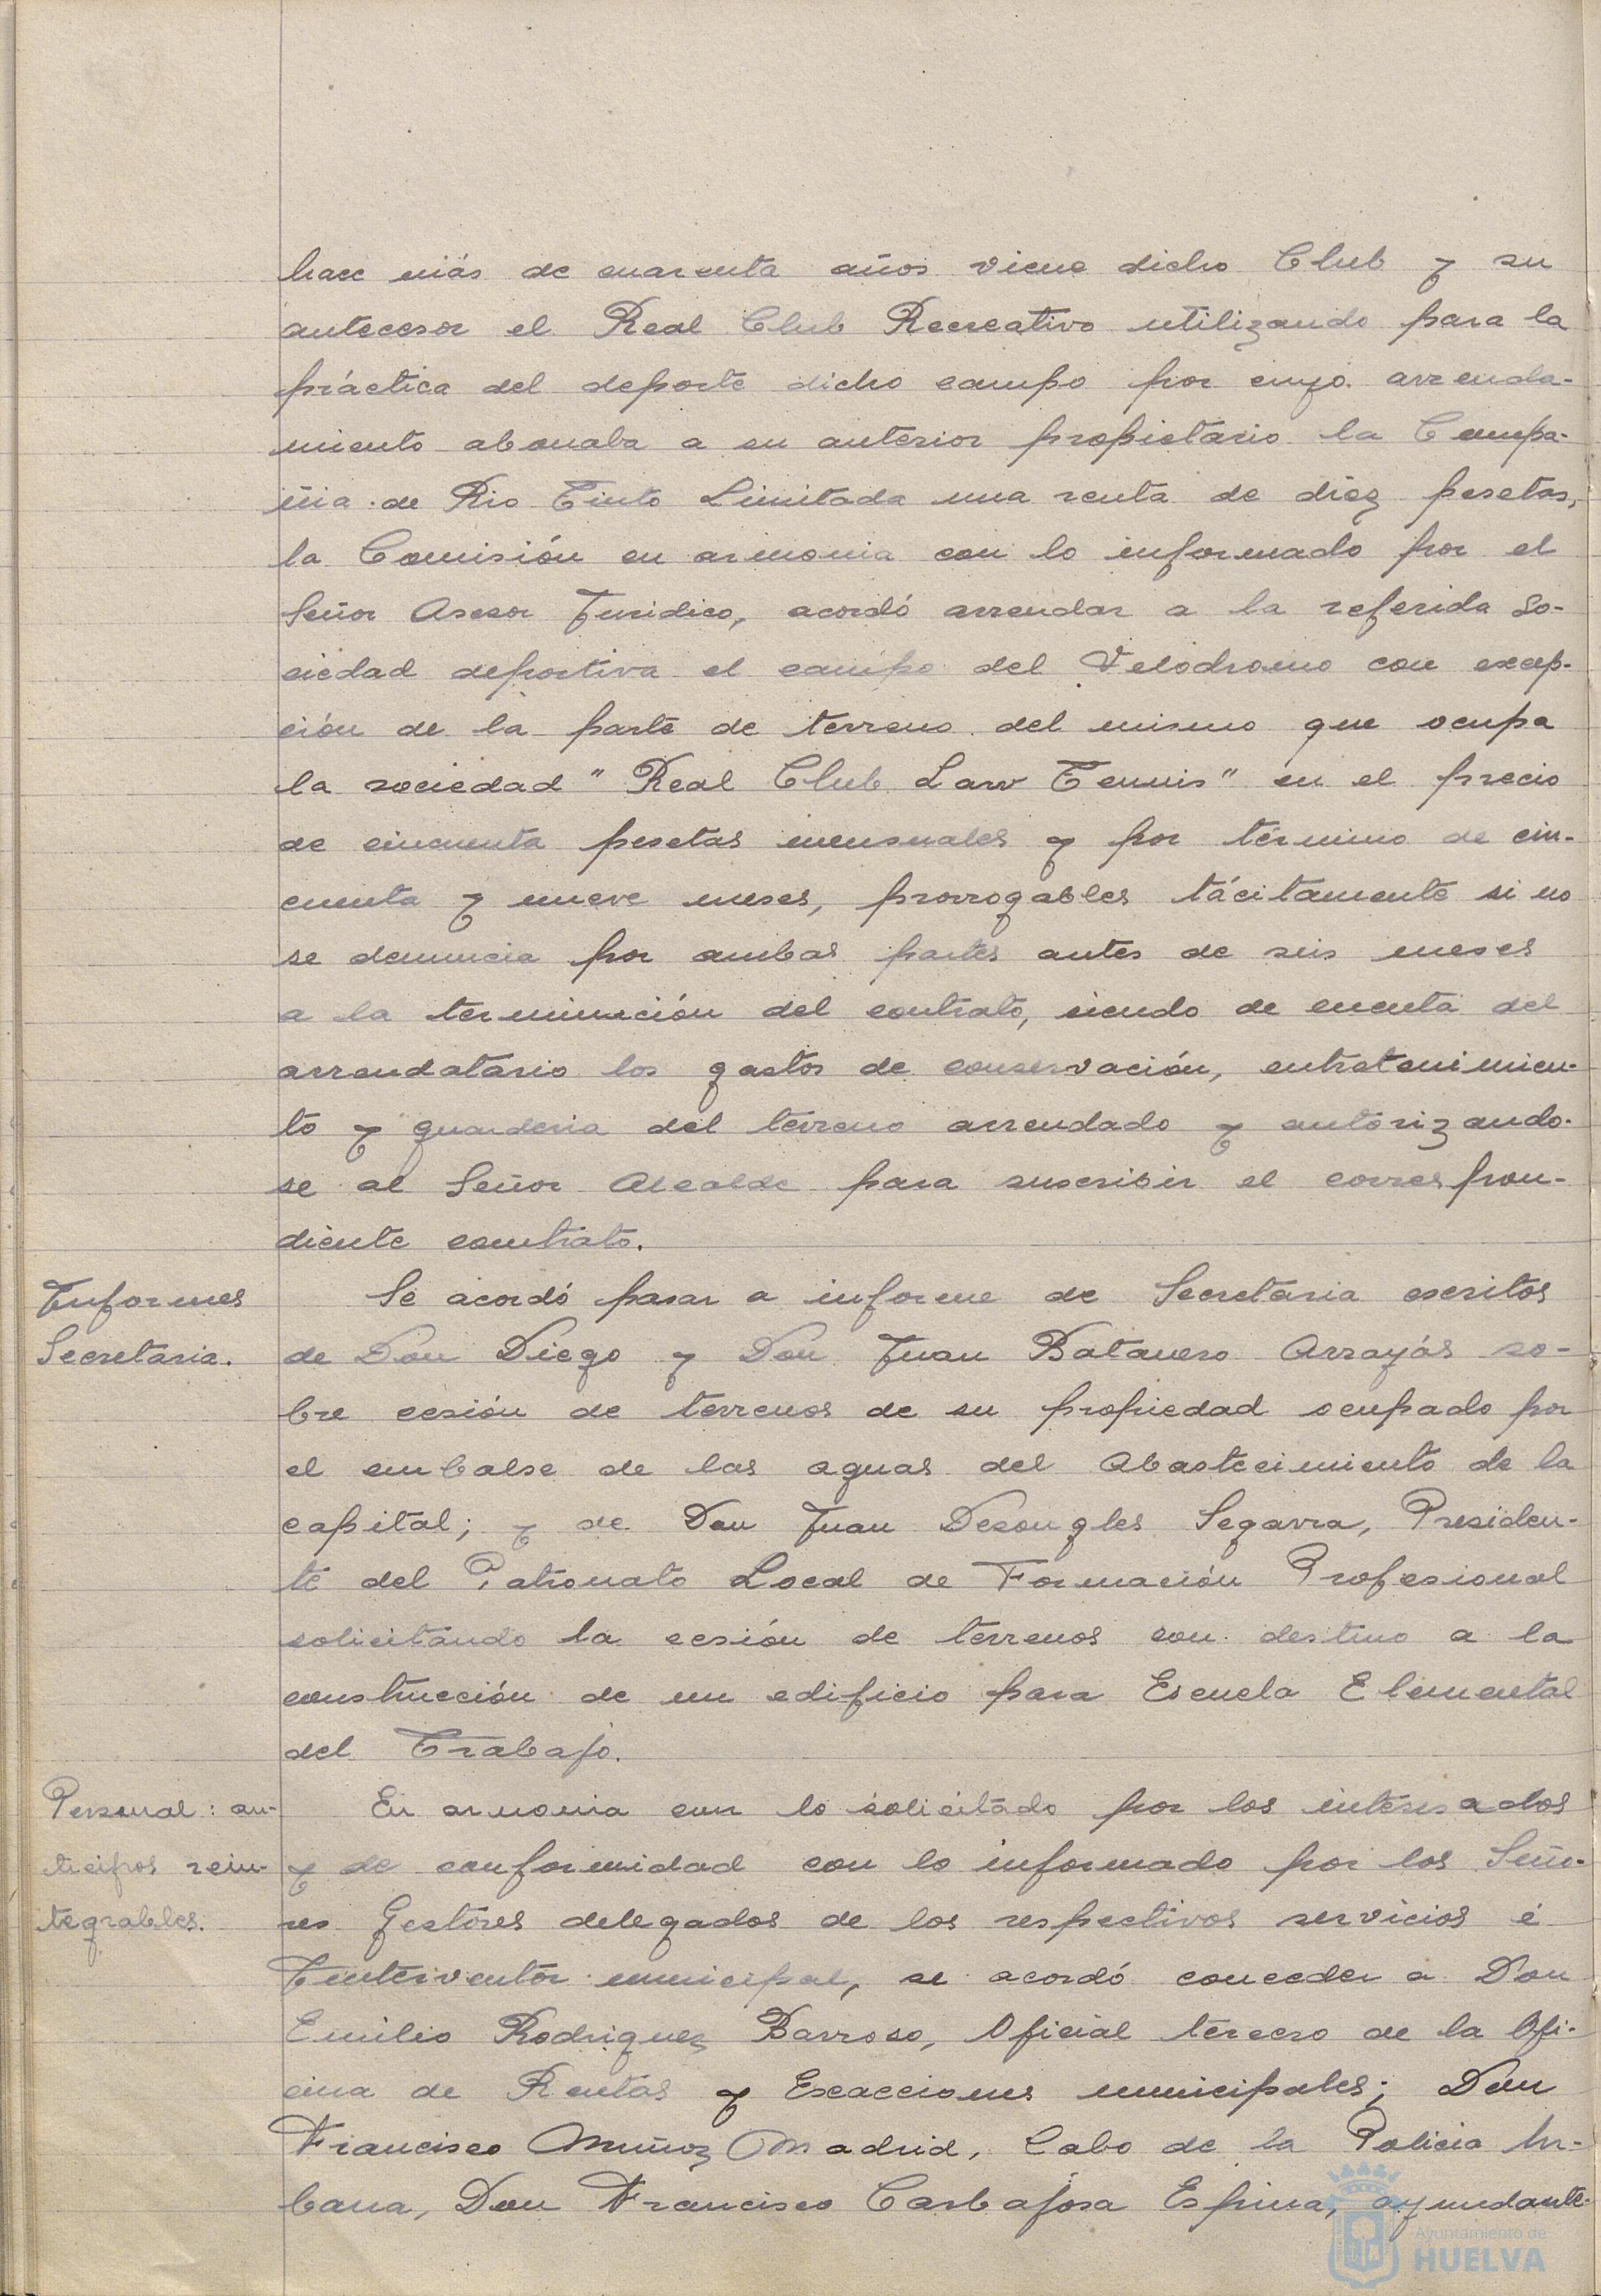 hace más de cuarenta años viene dicho Club y su
antecesor el Real Club Recreativo utilizando para la
práctica del deporte dicho campo por cuyo arrenda-
miento abonaba a su anterior propietario la Compa-
ñia de Rio Tinto Limitada una renta de diez pesetas,
la Comisión en armonia con lo informado por el
Señor Asesor Juridico, acordó arrendar a la referida so-
ciedad deportiva el campo del Velodromo con excep-
ción de la parte de terreno del mismo que ocupa
la sociedad "Real Club Law Tennis" en el precio
de cincuenta pesetas mensuales y por término de cin-
cuenta y nueve meses, prorrogables tácitamente si no
se denuncia por ambas partes antes de seis meses
a la terminación del contrato, siendo de cuenta del
arrendatario los gastos de conservación, entretenimien-
to y guarderia del terreno arrendado y autorizando-
se al Señor Alcalde para suscribir el correspon-
diente contrato.
Informes
Secretaria.
Se acordó pasar a informe de Secretaria escritos
de Don Diego y Don Juan Batanero Arrayás so-
bre cesión de terrenos de su propiedad ocupado por
el embalse de las aguas del Abastecimiento de la
capital; y de Don Juan Desongles Segarra, Presiden-
te del Patronato Local de Formación Profesional
solicitando la cesión de terrenos con destino a la
construcción de un edificio para Escuela Elemental
del Trabajo.
Personal: an-
ticipos rein-
tegrables.
En armonia con lo solicitado por los interesados
y de conformidad con lo informado por los Seño-
res Gestores delegados de los respectivos servicios é
Interventor municipal, se acordó conceder a Don
Emilio Rodriguez Barroso, Oficial tercero de la Ofi-
cina de Rentas y Exacciones municipales; Don
Francisco Muñoz Madrid, Cabo de la Policia Ur-
bana, Don Francisco Carbajosa Espina, ayundante-
Ayuntamiento de
HUELVA